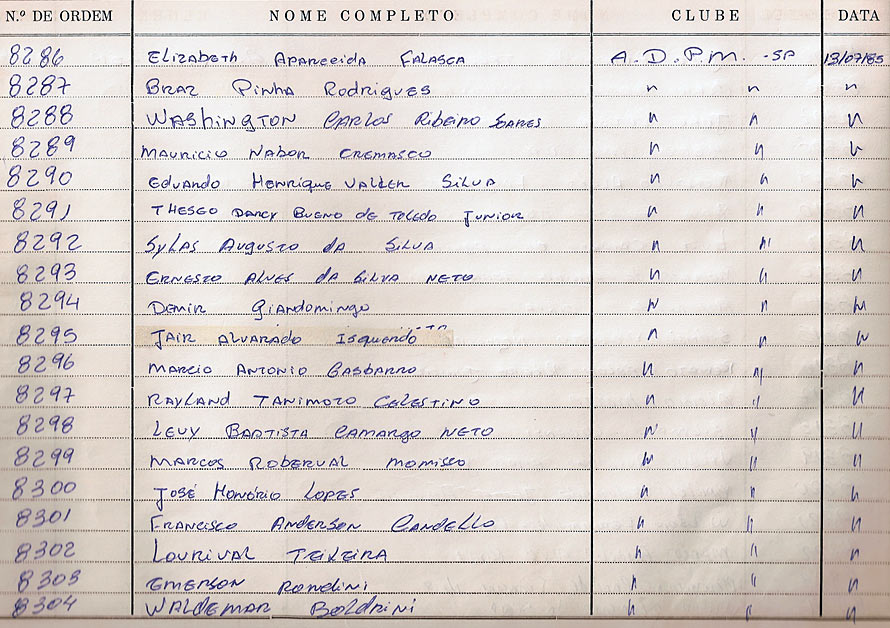 N.º DE ORDEM NOME COMPLETO CLUBE DATA
8286 Elizabeth Aparecida Falasca A.D.P.M.-SP 13/07/85
8287 Braz Pinha Rodrigues " " "
8288 Washington Carlos Ribeiro Soares " " "
8289 Mauricio Nabor Cremasco " " "
8290 Eduardo Henrique Valder Silva " " "
8291 Theseo Darcy Bueno de Toledo Junior " " "
8292 Sylas Augusto da Silva " " "
8293 Ernesto Alves da Silva Neto " " "
8294 Demir Giandomingo " " "
8295 Jair Alvarado Isquerdo " " "
8296 Marcio Antonio Gasbarro " " "
8297 Rayland Tanimoto Celestino " " "
8298 Levy Baptista Camargo Neto " " "
8299 Marcos Roberval Momisso " " "
8300 José Honório Lopes " " "
8301 Francisco Anderson Candello " " "
8302 Lourival Teixeira " " "
8303 Emerson Rondini " " "
8304 Waldemar Boldrini " " "